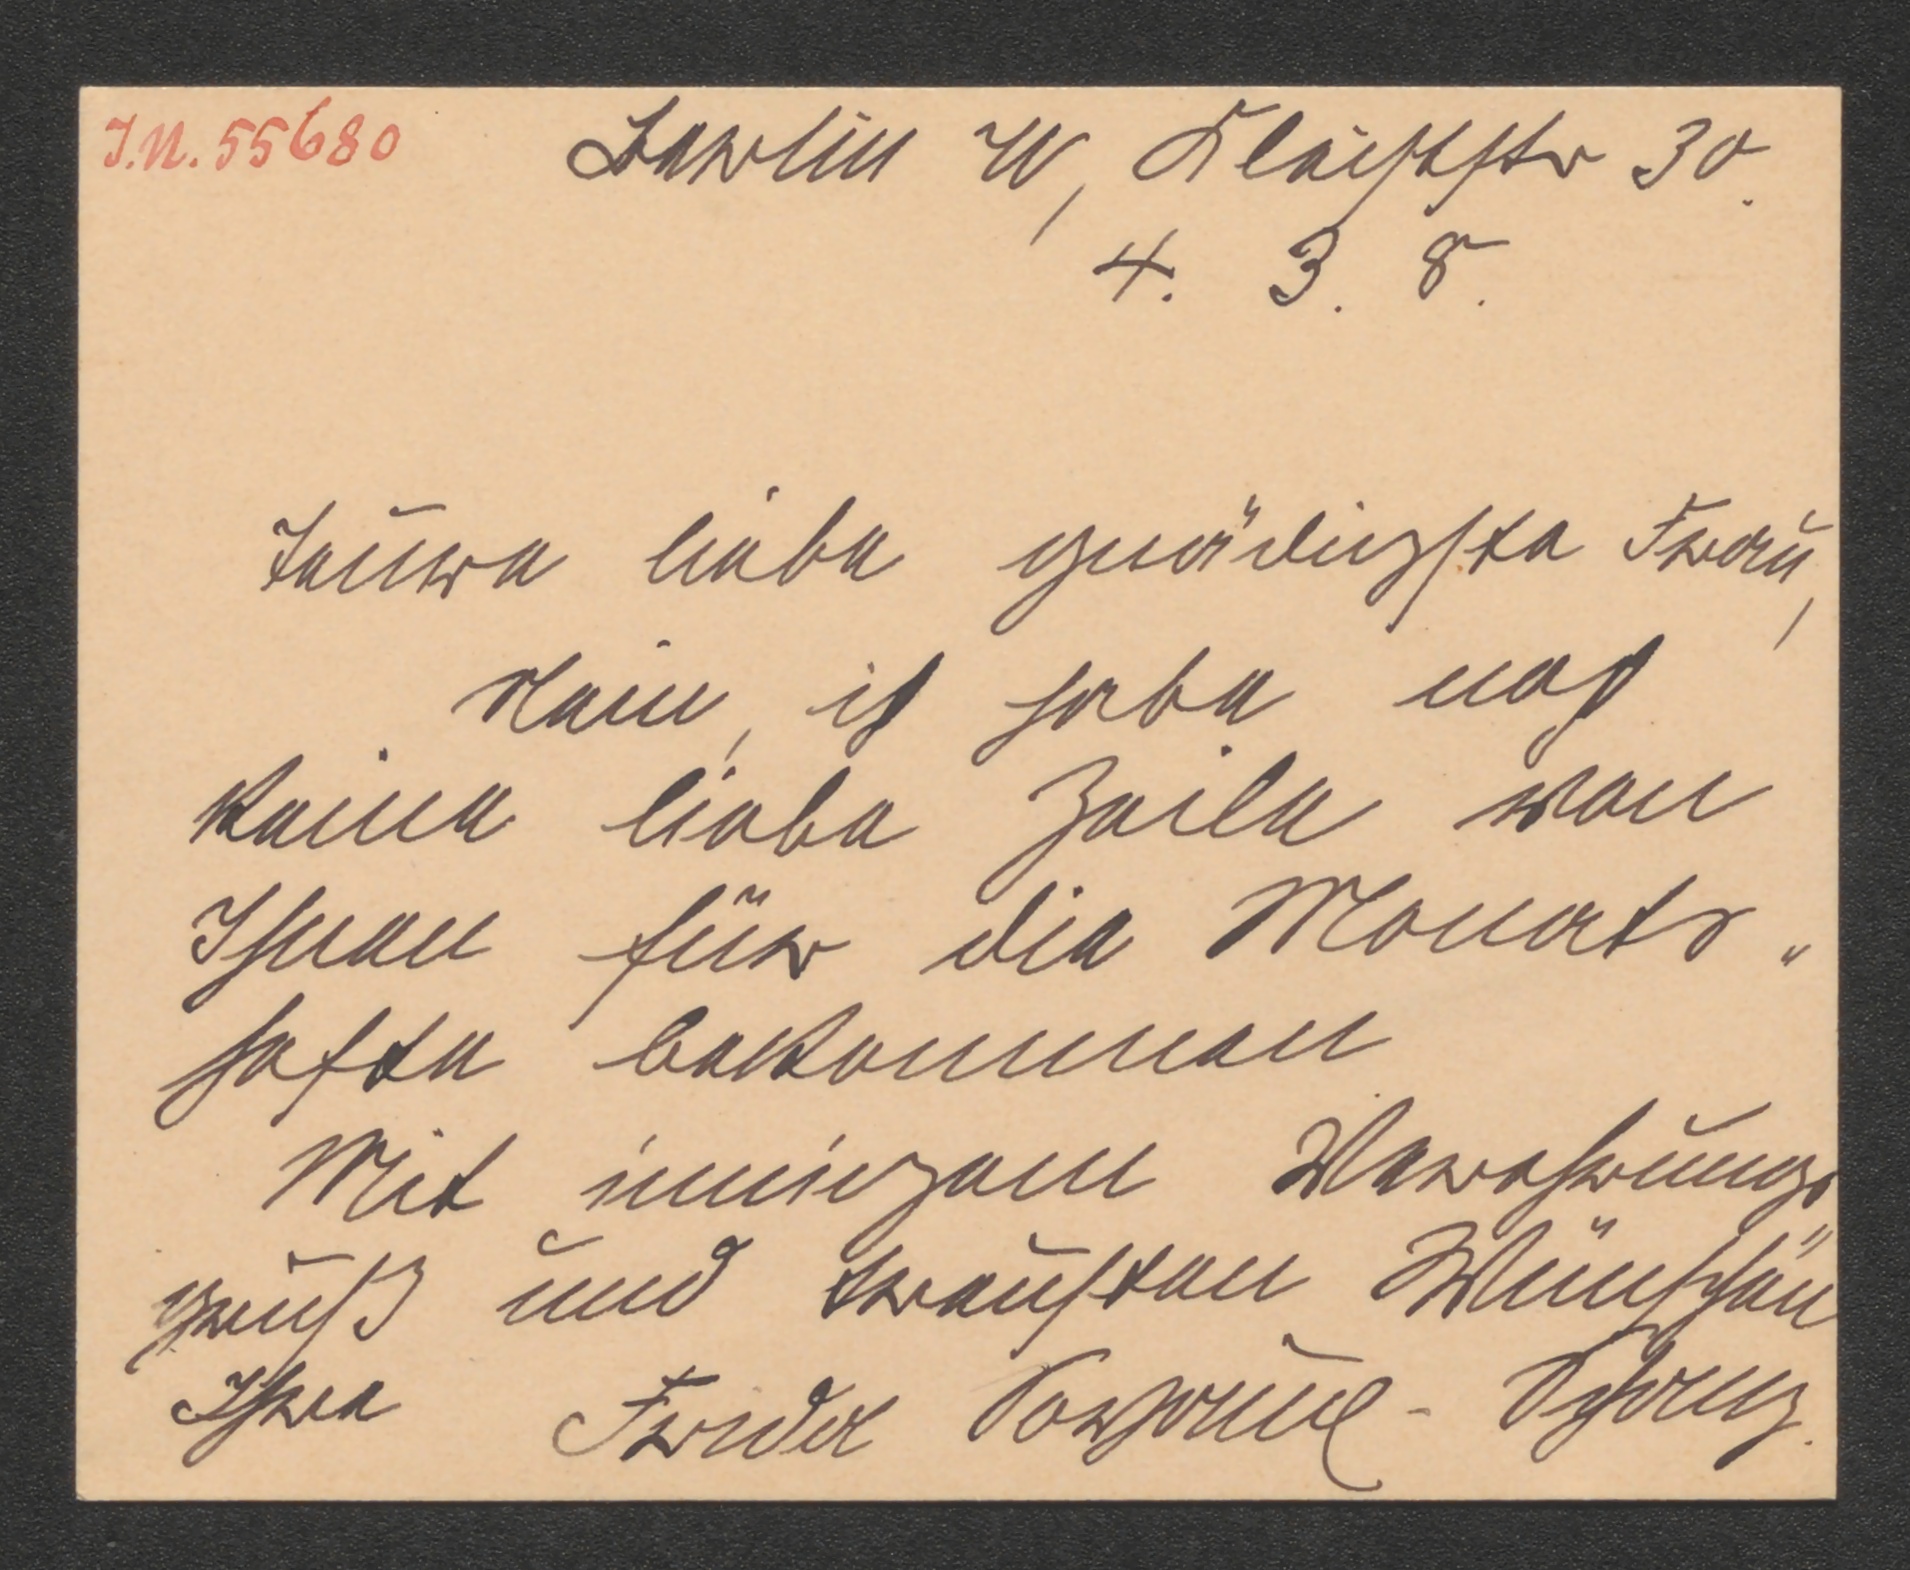 I.N. 55680
Berlin W, Kleiststr 30.
4. 3. 8.
Teure liebe gnädigste Frau,
Nein, ich habe noch
keine liebe Zeile von
Ihnen für die Monats-
hefte bekommen
Mit innigem Verehrungs
gruß und treusten Wünschen
Ihre Frida